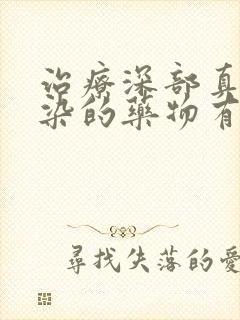 治療深部真
染的藥物有
尋找失落的愛